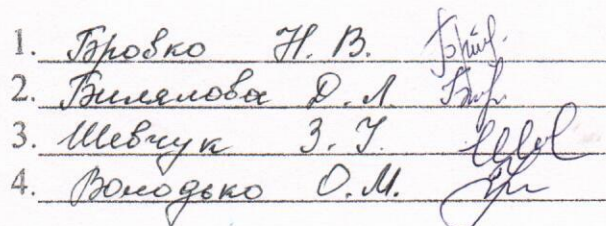 1. Бровко Н. В.
2. Билялова Д. Л.
3. Шевчук З. У.
4. Володько О. М.